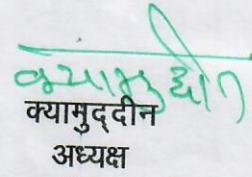 क्यामुद्दीन
क्यामुद्‌दीन
अध्यक्ष